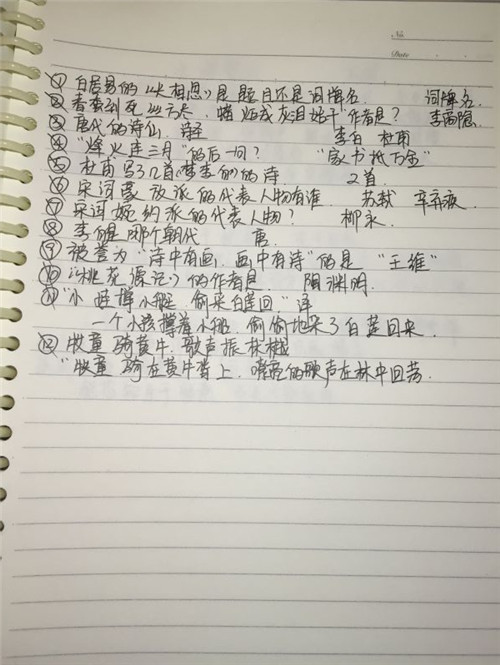 No
Date
① 白居易的《长相思》是题目还是词牌名. 词牌名.
② 春蚕到死丝方尽, 蜡炬成灰泪始干 作者是? 李商隐.
③ 唐代的诗仙 诗圣 李白 杜甫
④ "烽火连三月"的后一句? "家书抵万金"
⑤ 杜甫写几首《梦李白》的诗 2首.
⑥ 宋词豪放派的代表人物有谁 苏轼 辛弃疾.
⑦ 宋词婉约派的代表人物? 柳永.
⑧ 李白是哪个朝代 唐.
⑨ 被誉为"诗中有画, 画中有诗"的是 "王维"
⑩ 《桃花源记》的作者是. 陶渊明.
⑪ "小娃撑小艇 偷采白莲回" 译
一个小孩撑着小艇, 偷偷地采了白莲回来.
⑫ 牧童骑黄牛, 歌声振林樾
"牧童 骑在黄牛背上, 嘹亮的歌声在林中回荡.